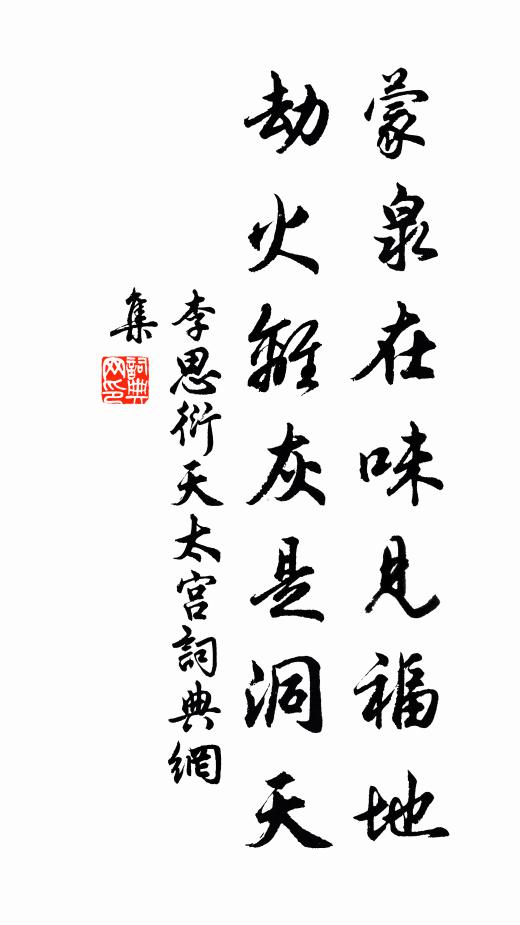 蒙泉在味見福地
劫火難灰是洞天
李思衍天太宮詞典網
集
詞典網印